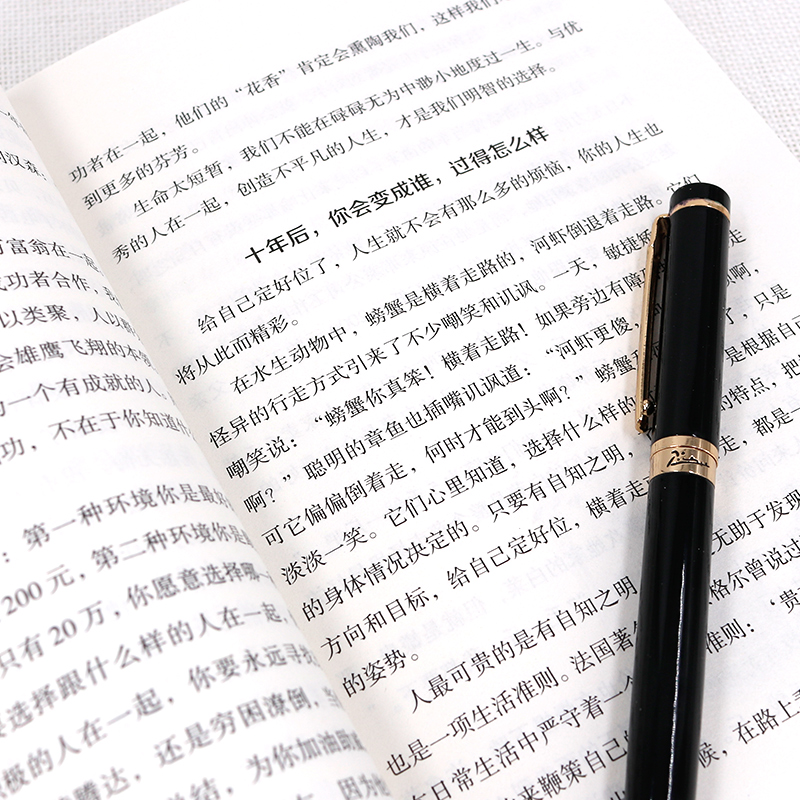 富翁在一起
功者合作，
以类聚，人以
会雄鹰飞翔的本
的一个有成就的人。
功，不在于你知道
：第一种环境你是最好
200 元，第二种环境你是
只有 20 万，你愿意选择哪
选择跟什么样的人在一起，
极的人在一起，你要永远寻找
腾达，还是穷困潦倒，当
总结，为你加油
因为
功者在一起，他们的“花香”肯定会熏陶我们，这样我们
到更多的芬芳。
生命太短暂，我们不能在碌碌无为中渺小地度过一生。与优
秀的人在一起，创造不平凡的人生，才是我们明智的选择。
十年后，你会变成谁，过得怎么样
给自己定好位了，人生就不会有那么多的烦恼，你的人生也
将从此而精彩。
在水生动物中，螃蟹是横着走路的，河虾倒退着走路。它们
怪异的行走方式引来了不少嘲笑和讥讽。一天，敏捷
嘲笑说：“螃蟹你真笨！横着走路！如果旁边有障
啊？”聪明的章鱼也插嘴讥讽道：“河虾更傻，
可它偏偏倒着走，何时才能到头啊？”螃蟹
淡淡一笑。它们心里知道，选择什么样的
的身体情况决定的。只要有自知之明，
方向和目标，给自己定好位，横着走
的姿势。
人最可贵的是有自知之明
也是一项生活准则。法国著
在日常生活中严守着一个
来鞭策自己
走
啊，
了，只是
是根据自
的特点，把
走，都是一
无助于发现
格尔曾说过
准则：‘贵
候，在路上